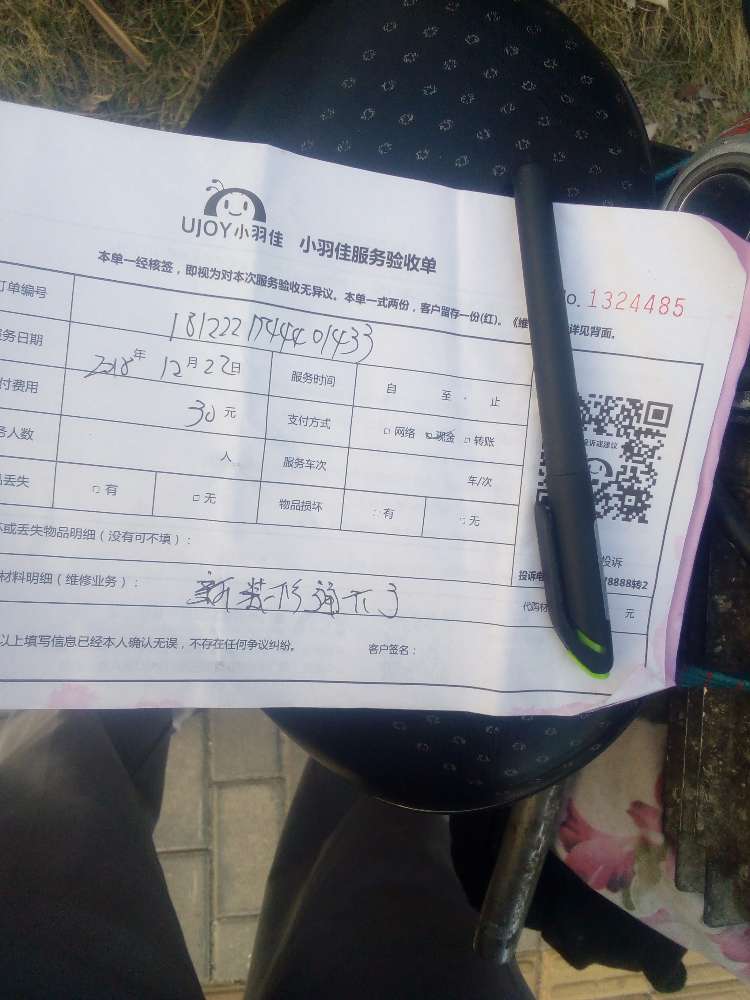 UJOY小羽佳 小羽佳服务验收单
本单一经核签，即视为对本次服务验收无异议。本单一式两份，客户留存一份(红)。《维 详见背面。
No. 1324485
订单编号 18122217544401433
服务日期 2018年 12月22日 服务时间 自 至 止
付费用 30元 支付方式 □网络 ☑现金 □转账
务人数 人 服务车次 车/次
品丢失 □有 □无 物品损坏 □有 □无
坏或丢失物品明细（没有可不填）：
材料明细（维修业务）： 新装修通不了
代购材 元
以上填写信息已经本人确认无误，不存在任何争议纠纷。 客户签名：
投诉建议
投诉
投诉电 8888转2